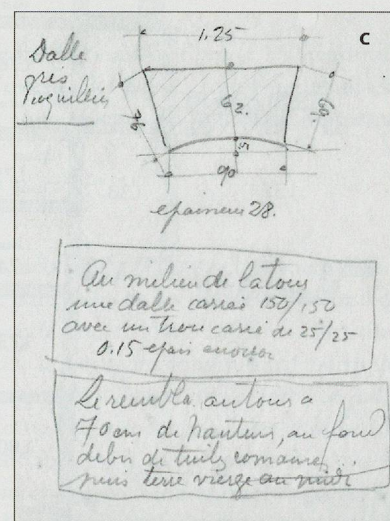 C
Dalle
près
1.25
62.
69.
76
5
90
epaisseur 28.
Au milieu de la tour
une dalle carrée 150/150
avec un trou carré de 25/25
0.15 epais
Le remblai autour a
70 cm de hauteur, au fond
debris de tuiles romaines
puis terre vierge au midi